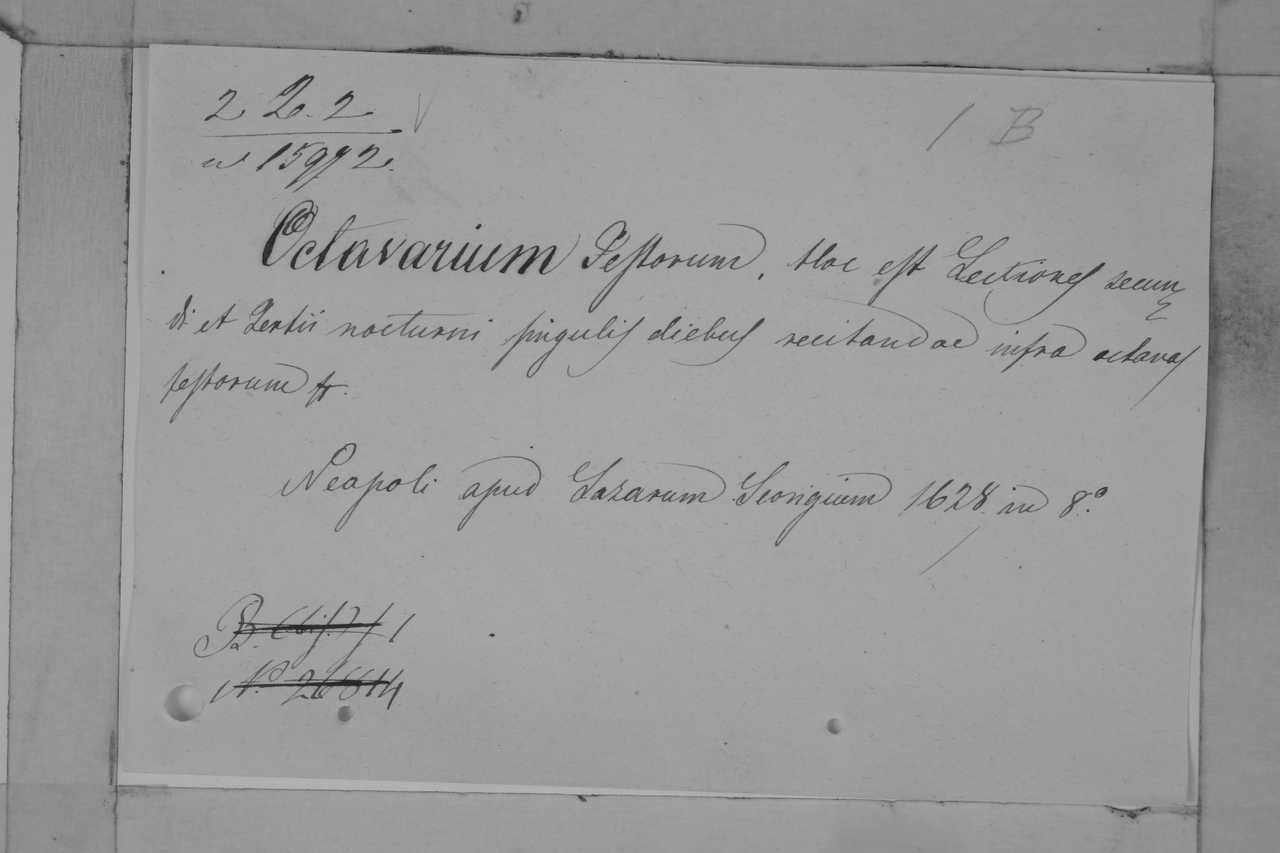 2 L. 2
1 B
n 15972.
Octavarium Festorum, Hoc est Lectiones secun
di et Tertii nocturni singulis diebus recitandae infra octavas
festorum &.
Neapoli apud Lazarum Scorigium 1628 in 8.º
B. 1
N.º 26614